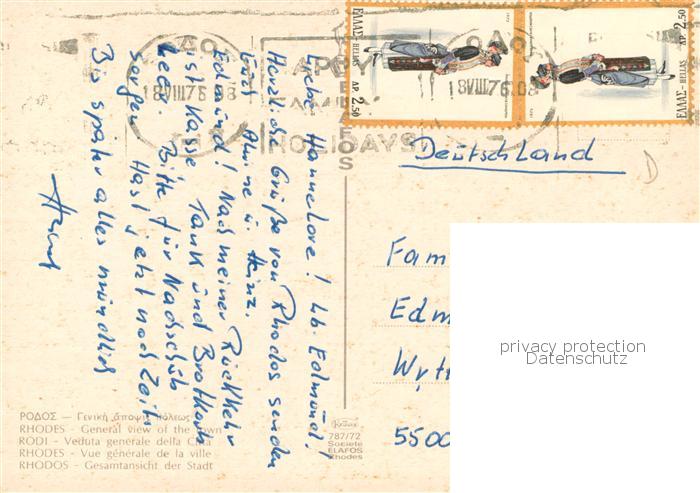 Liebe Hannelore! Lb. Edmund!
Herzliche Grüße von Rhodos senden
Euch Alwine u. Heinz.
Edmund! Nach meiner Rückkehr
ist Kasse, Tank und Brotkorb
leer. Bitte für Nachschub
sorgen. Hast jetzt noch Zeit.
Bis später alles mündlich
ΕΛΛΑΣ-HELLAS ΔΡ. 2.50
ΕΛΛΑΣ-HELLAS ΔΡ. 2.50
18 VIII 76.08
18 VIII 76.08
HOLIDAYS
Deutschland
D
Fam
Edm
5500
privacy protection
Datenschutz
ΡΟΔΟΣ — Γενική ἄποψις πόλεως
RHODES - General view of the town
RODI - Veduta generale della Città
RHODES - Vue générale de la ville
RHODOS - Gesamtansicht der Stadt
787/72
Societe
ELAFOS
Rhodes